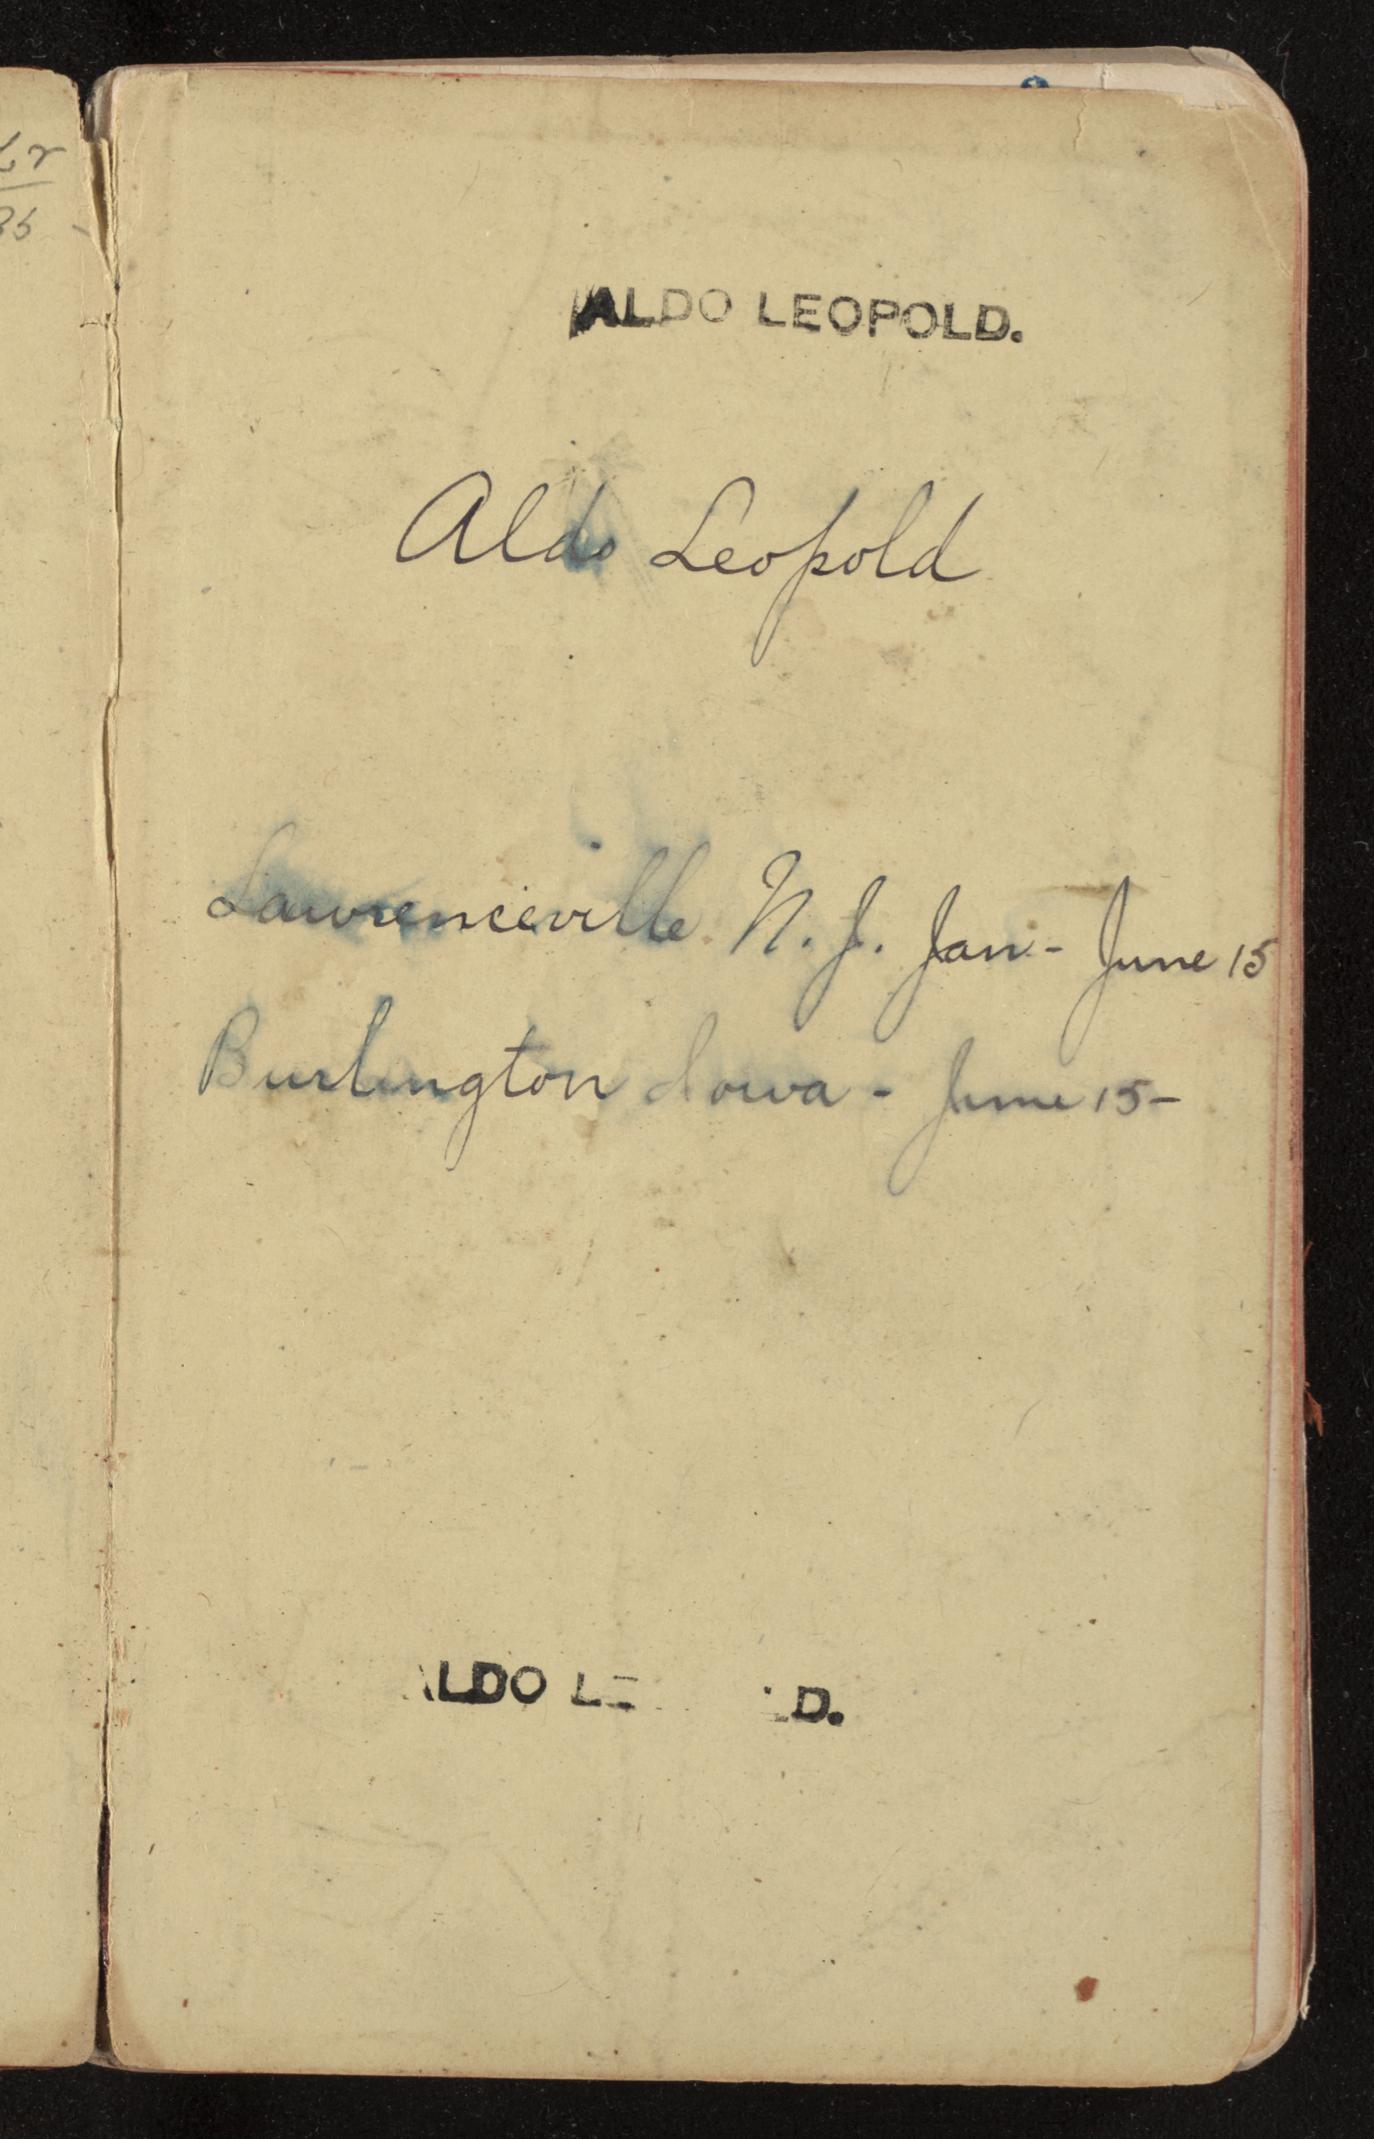 ALDO LEOPOLD.
Aldo Leopold
Lawrenceville N. J. Jan - June 15
Burlington Iowa - June 15-
ALDO LE LD.